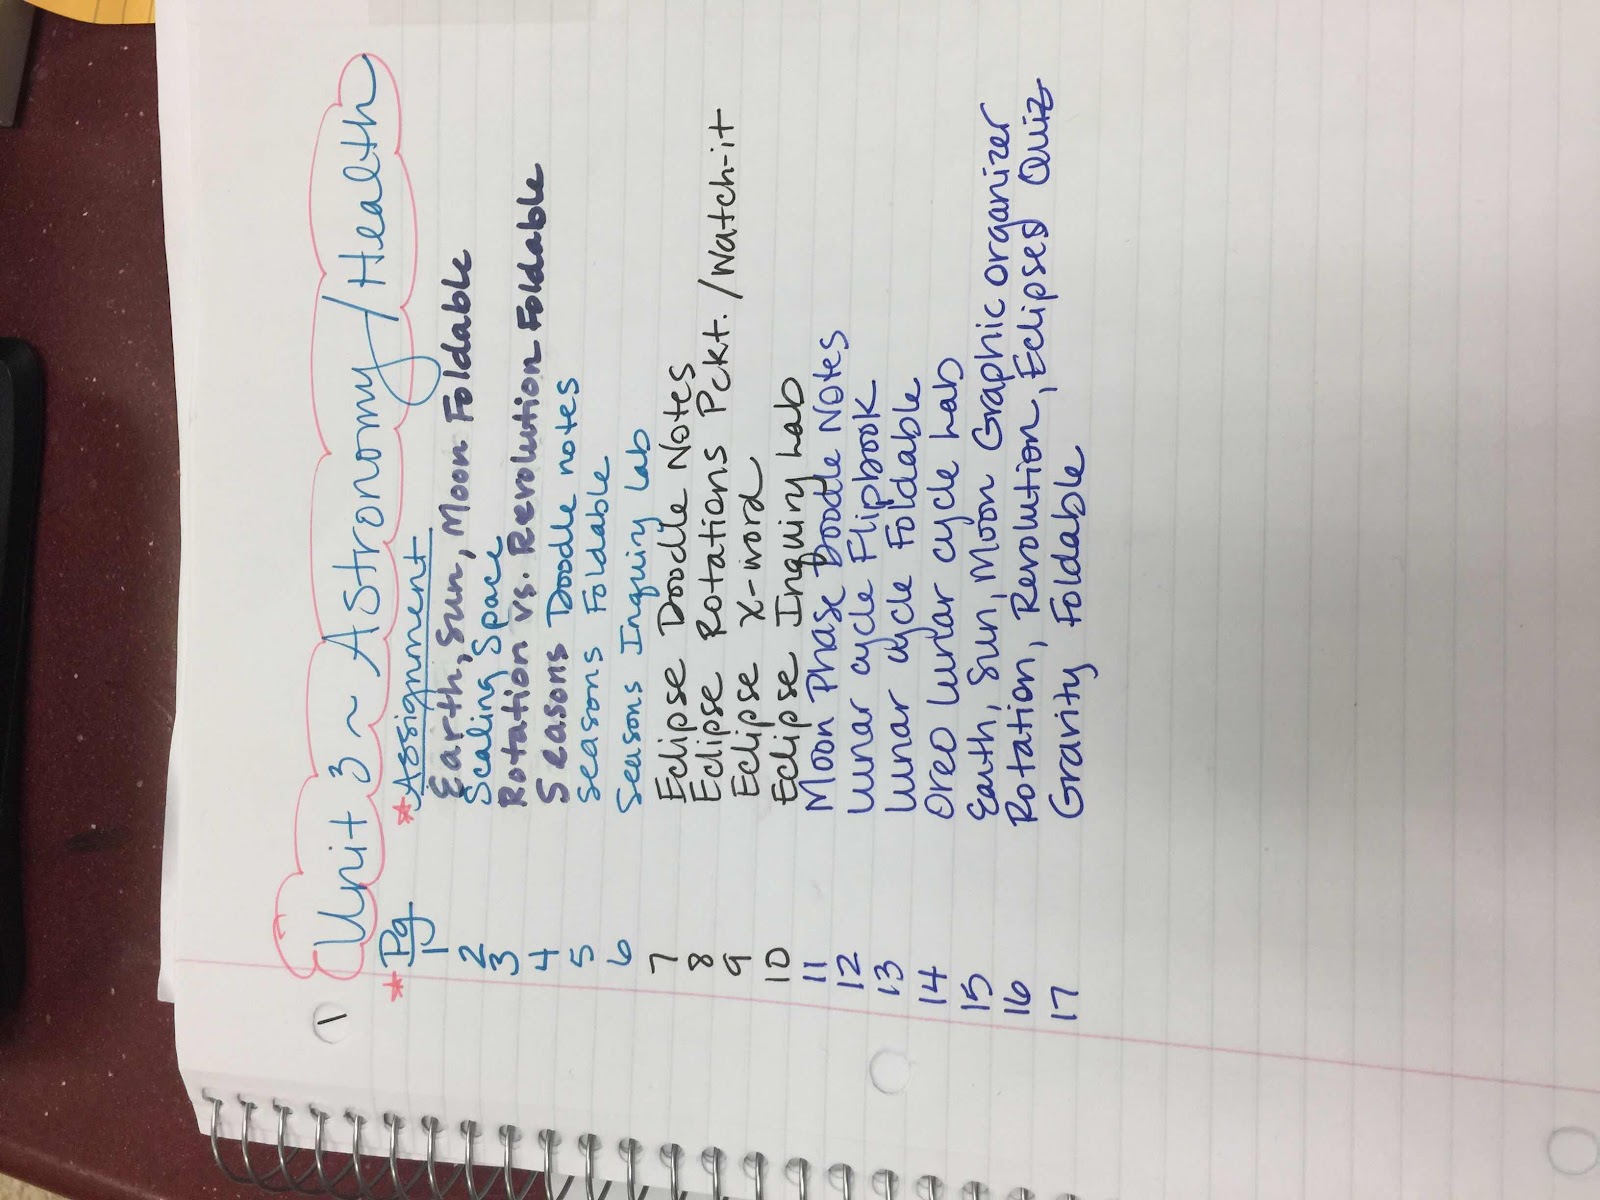 Unit 3 ~ Astronomy/Health
*Pg *Assignment
1 Earth, Sun, Moon Foldable
2 Scaling Space
3 Rotation vs. Revolution Foldable
4 Seasons Doodle notes
5 Seasons Foldable
6 Seasons Inquiry Lab
7 Eclipse Doodle Notes
8 Eclipse Rotations Pckt./Watch-it
9 Eclipse X-word
10 Eclipse Inquiry Lab
11 Moon Phase Doodle Notes
12 Lunar cycle Flipbook
13 Lunar cycle Foldable
14 Oreo Lunar cycle Lab
15 Earth, Sun, Moon Graphic organizer
16 Rotation, Revolution, Eclipses Quiz
17 Gravity Foldable